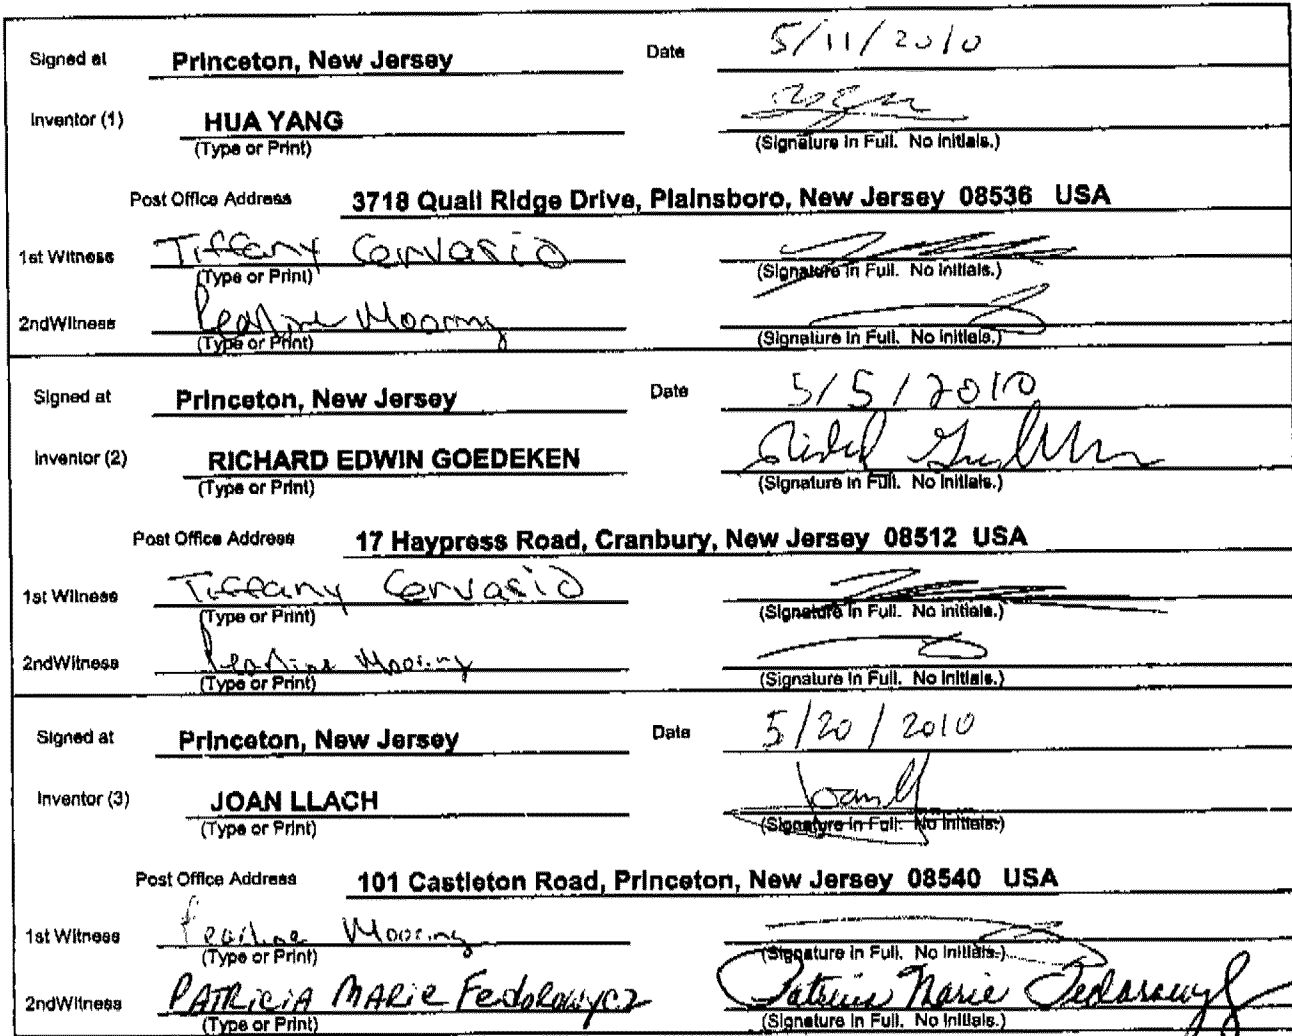 Signed at Princeton, New Jersey Date 5/11/2010
Inventor (1) HUA YANG
(Type or Print) (Signature in Full. No Initials.)
Post Office Address 3718 Quail Ridge Drive, Plainsboro, New Jersey 08536 USA
1st Witness Tiffany Cervasio
(Type or Print) (Signature in Full. No Initials.)
2ndWitness Pearline Mooring
(Type or Print) (Signature in Full. No Initials.)
Signed at Princeton, New Jersey Date 5/5/2010
Inventor (2) RICHARD EDWIN GOEDEKEN
(Type or Print) (Signature in Full. No Initials.)
Post Office Address 17 Haypress Road, Cranbury, New Jersey 08512 USA
1st Witness Tiffany Cervasio
(Type or Print) (Signature in Full. No Initials.)
2ndWitness Pearline Mooring
(Type or Print) (Signature in Full. No Initials.)
Signed at Princeton, New Jersey Date 5/20/2010
Inventor (3) JOAN LLACH
(Type or Print) (Signature in Full. No Initials.)
Post Office Address 101 Castleton Road, Princeton, New Jersey 08540 USA
1st Witness Pearline Mooring
(Type or Print) (Signature in Full. No Initials.)
2ndWitness PATRICIA MARIE Fedorowycz Patricia Marie Fedorowycz
(Type or Print) (Signature in Full. No Initials.)